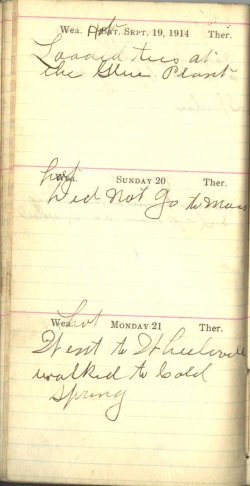 Wea. Hot SAT. SEPT. 19, 1914 Ther.
Loaded ties at
the Glue Plant
Wea. hot SUNDAY 20 Ther.
Did Not Go to Mass
Wea. hot MONDAY 21 Ther.
Went to
walked to Cold
Spring